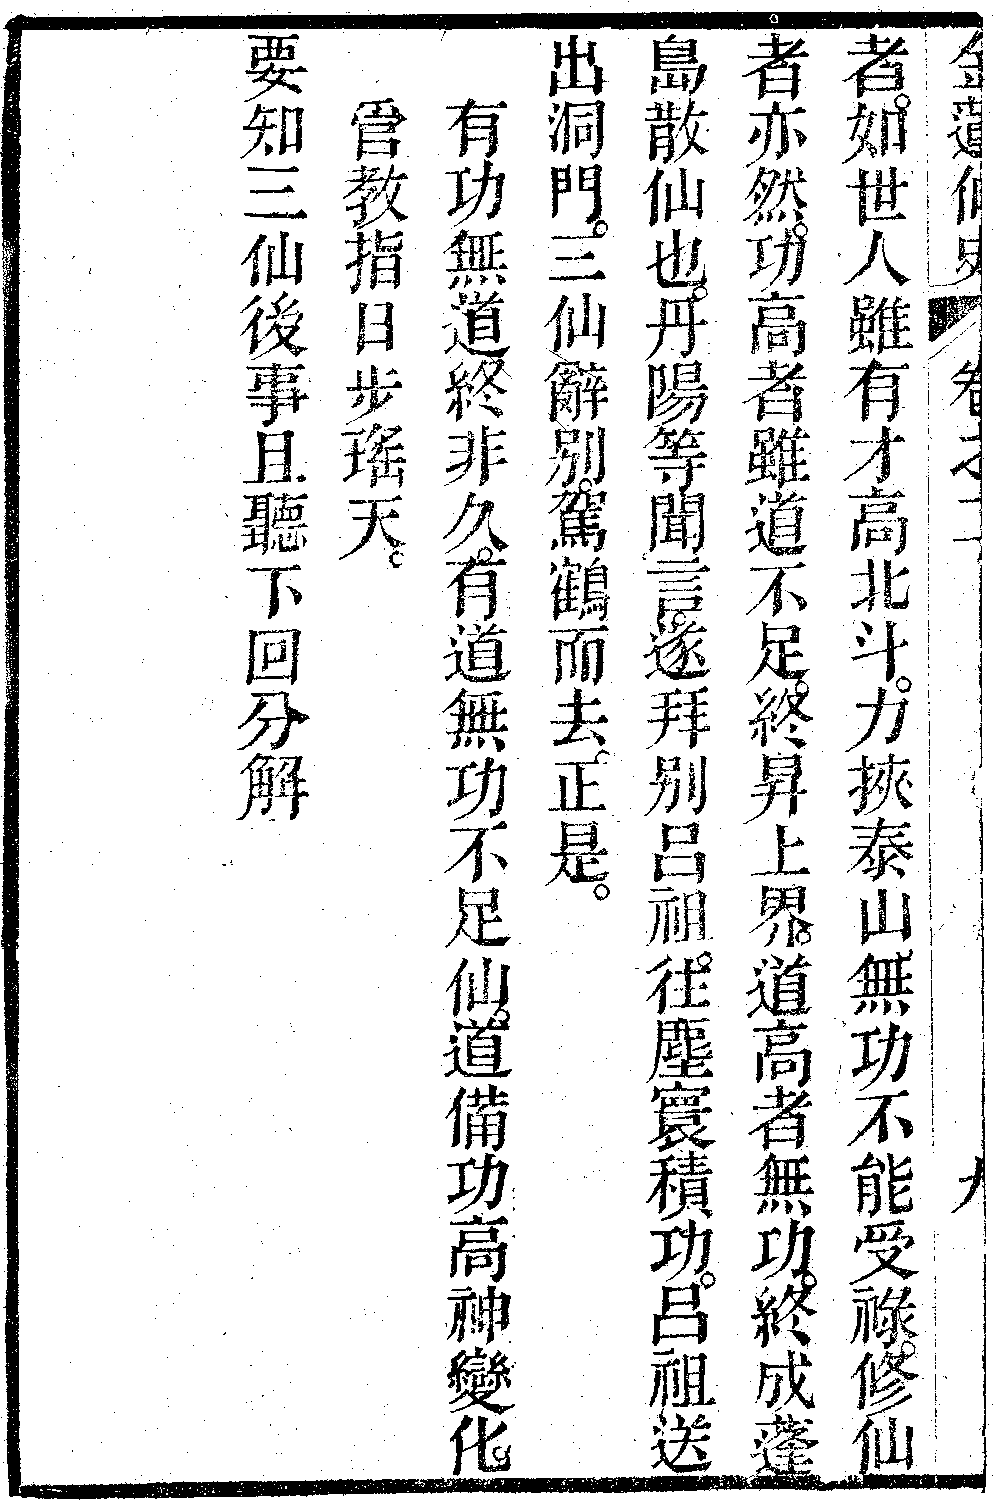 金蓮仙史　卷之二　九
者。如世人雖有才高北斗。力挾泰山。無功不能受祿。修仙
者亦然。功高者雖道不足。終昇上界。道高者無功。終成蓬
島散仙也。丹陽等聞言。遂拜別呂祖。往塵寰積功。呂祖送
出洞門。三仙辭別。駕鶴而去。正是。
有功無道終非久。有道無功不足仙。道備功高神變化。
管教指日步瑤天。
要知三仙後事且聽下回分解